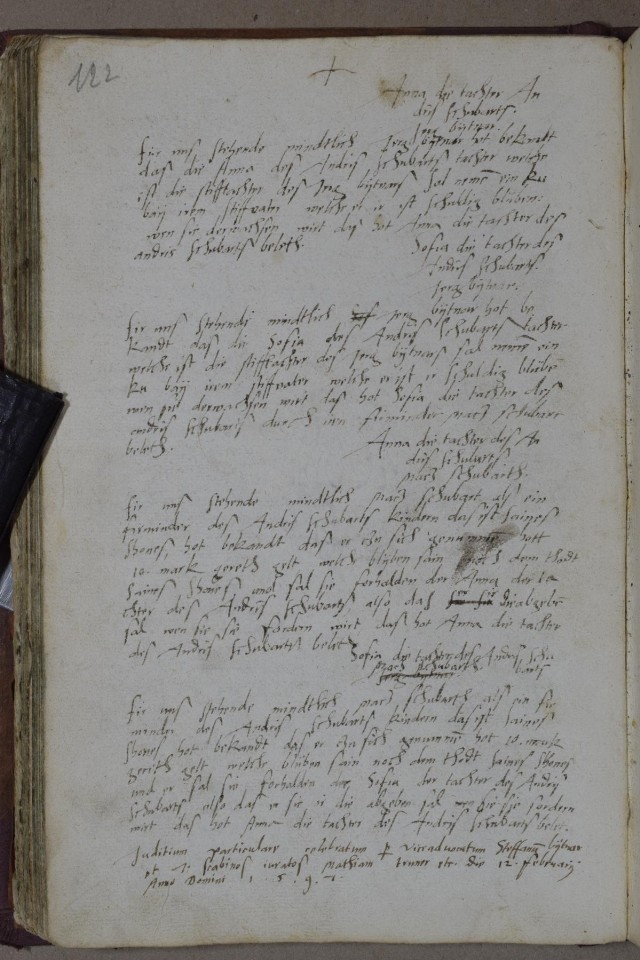 122
+
Anna die tachter An
dris Schubarts.
Jerg bÿtnar.
Für uns stehende mindtlich Jerg bÿtnar hot bekandt
das die Anna des Andris Schubarts tachter welche
ist die stifftachter des Jerg bÿtnars sal nemen ein ku
baÿ irem stiffvater welche er ir ist schuldig bliben.
wen sie derwachsen wirt das hot Anna die tachter des
Andris Schubarts beleth.
Sofia die tachter des
Andris Schubarts.
Jerg bÿtnar.
Für uns stehende mindtlich Jerg bÿtnar hot be
kandt das die Sofia des Andris Schubarts tachter
welche ist die stifftachter des Jerg bÿtnars sal nemen ein
ku baÿ irem stiffvater welche er ist ir schuldig bliben
wen sie derwachsen wirt das hot Sofia die tachter des
Andris Schubarts durch iren firminder Schubart
beleth.
Anna die tachter des An
dris Schubarts
Schubarth.
Für uns stehende mindtlich Schubart als ein
firminder des Andris Schubarts kindern das ist
hot bekandt das er zu sich genummen hott
10. mark gereth gelt welch bliben sain noch dem thodt
und sal sie forhalden der Anna der ta
chter des Andris Schubarts also das er sie ir die abgeben
sal wen sie sie fordern wirt das hot Anna die tachter
des Andris Schubarts beleth
Sofia die tachter des Andres Schu
Schubarth. barts
Jerg bÿtnar
Für uns stehende mindtlich Schubarth als ein fir
minder des Andris Schubarts kindern das ist
hot bekandt das er zu sich genummen hot 10. mark
gerith gelt welche bliben sain noch dem thodt
und er sal sie forhalden der Sofia der tachter des Andris
Schubarts also das er sie ir die abgeben sal wen sie sie fordern
wirt das hot Anna die tachter des Andris Schubarts beleth.
Juditium particulare celebratum p viceadvocatum Steffanum bÿtnar
et scabinos iuratos Mathiam etc. die 12. februarij
Anno Domini 1. 5. 9.